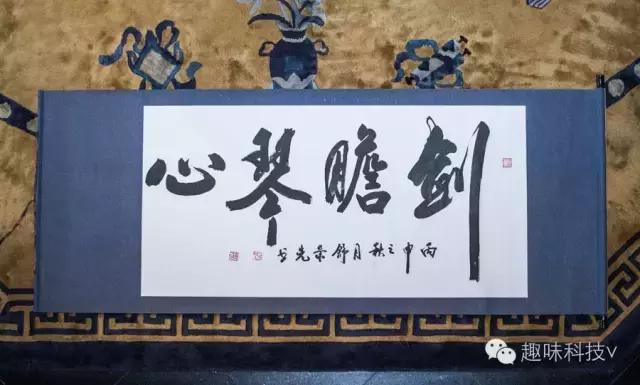 劍膽琴心
丙申之秋月舒景光书
趣味科技v